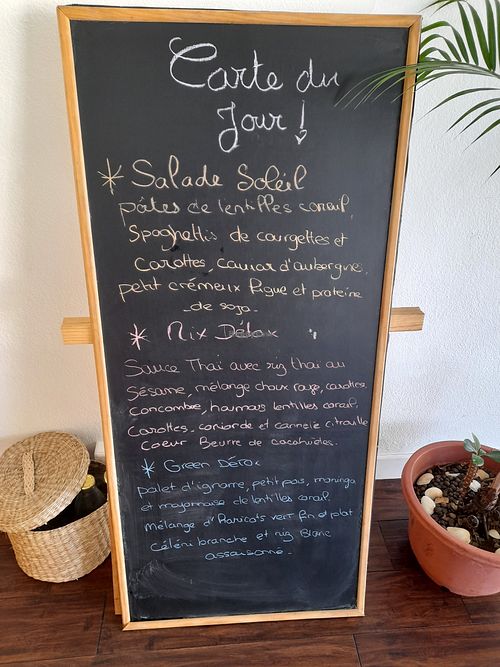 Carte du
Jour !
* Salade Soléil
pâtes de lentilles corail,
Spaghettis de courgettes et
Carottes, caviar d'aubergine,
petit crémeux figue et proteine
de soja.
* Mix Détox
Sauce Thaï avec riz thaï au
Sésame, mélange choux rouge, carottes,
Concombre, houmous lentilles corail.
Carottes, coriande et cannele citrouille
Coeur Beurre de cacahuètes.
* Green Détox
palet d'igname, petit pois, moringa
et mayonnaise de lentilles corail.
Mélange d'Haricots vert fin et plat
Céléri branche et riz Blanc
assaisonné.